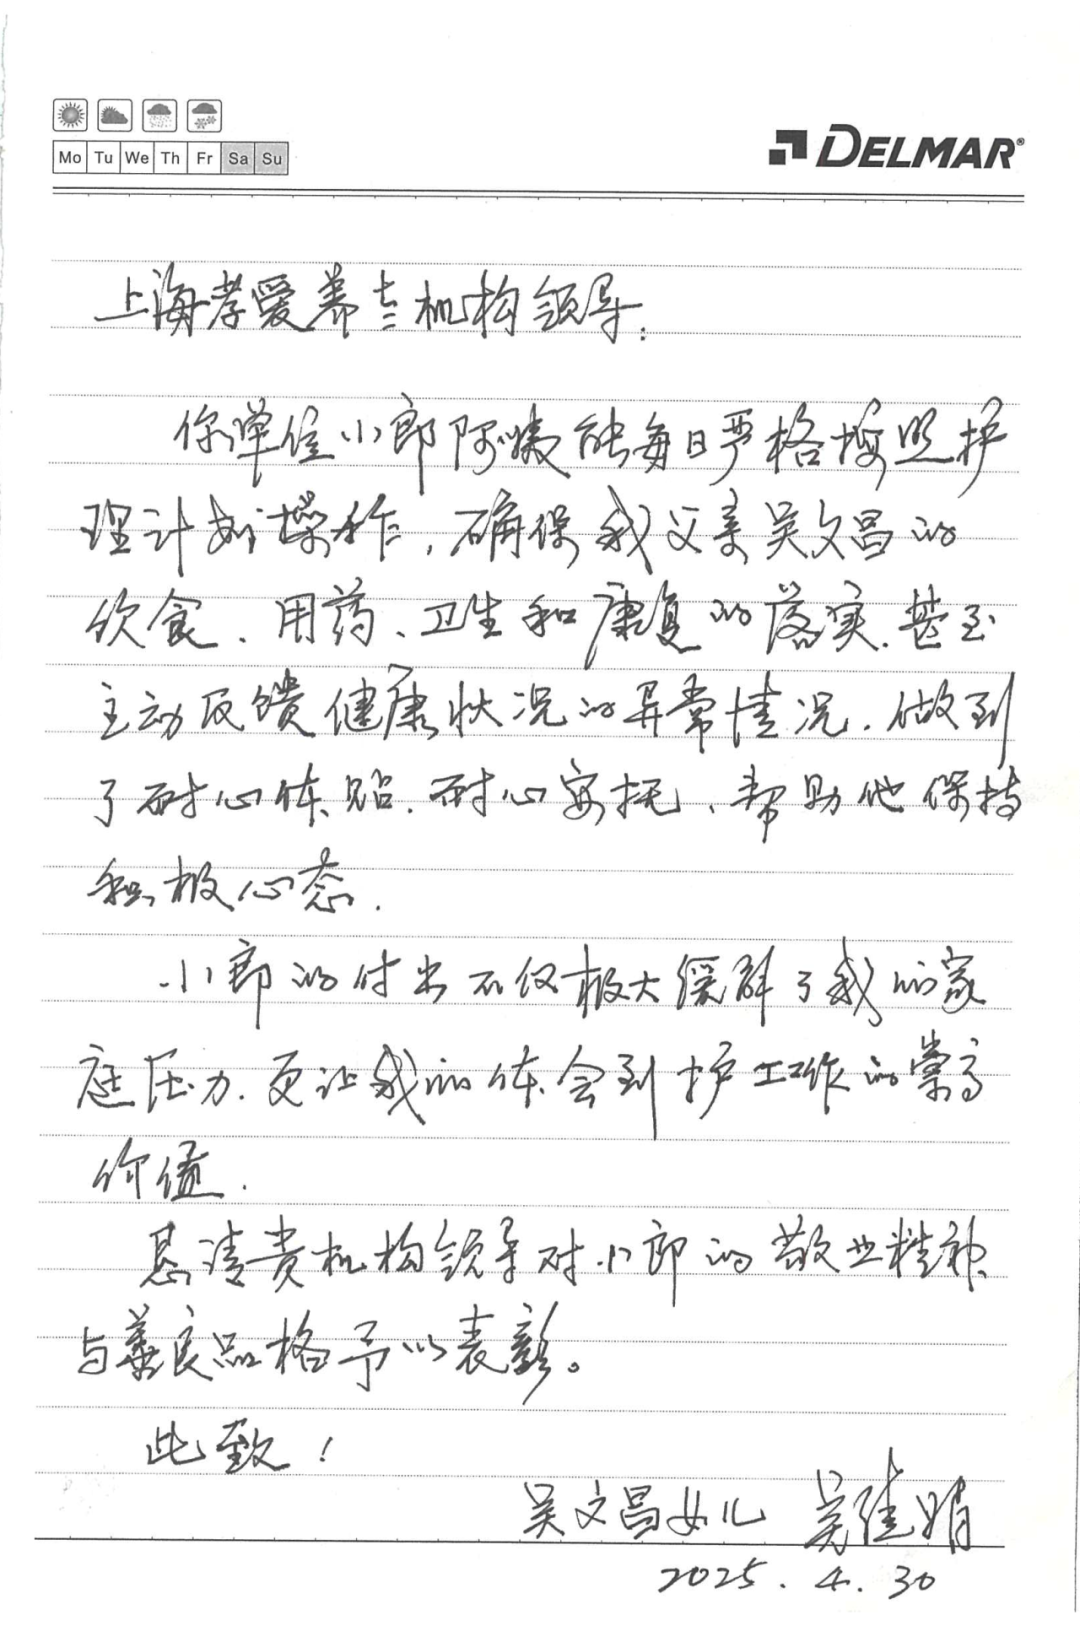 Mo Tu We Th Fr Sa Su
DELMAR
上海孝爱养老机构领导:
你单位小郎阿姨能每日严格按照护
理计划操作,确保我父亲吴文昌的
饮食、用药、卫生和康复的落实.甚至
主动反馈健康状况的异常情况.做到
了耐心体贴.耐心安抚、帮助他保持
积极心态.
小郎的付出不仅极大缓解了我的家
庭压力.更让我的体会到护工作的崇高
价值.
恳请贵机构领导对小郎的敬业精神
与善良品格予以表彰。
此致!
吴文昌女儿 吴佳娟
2025.4.30